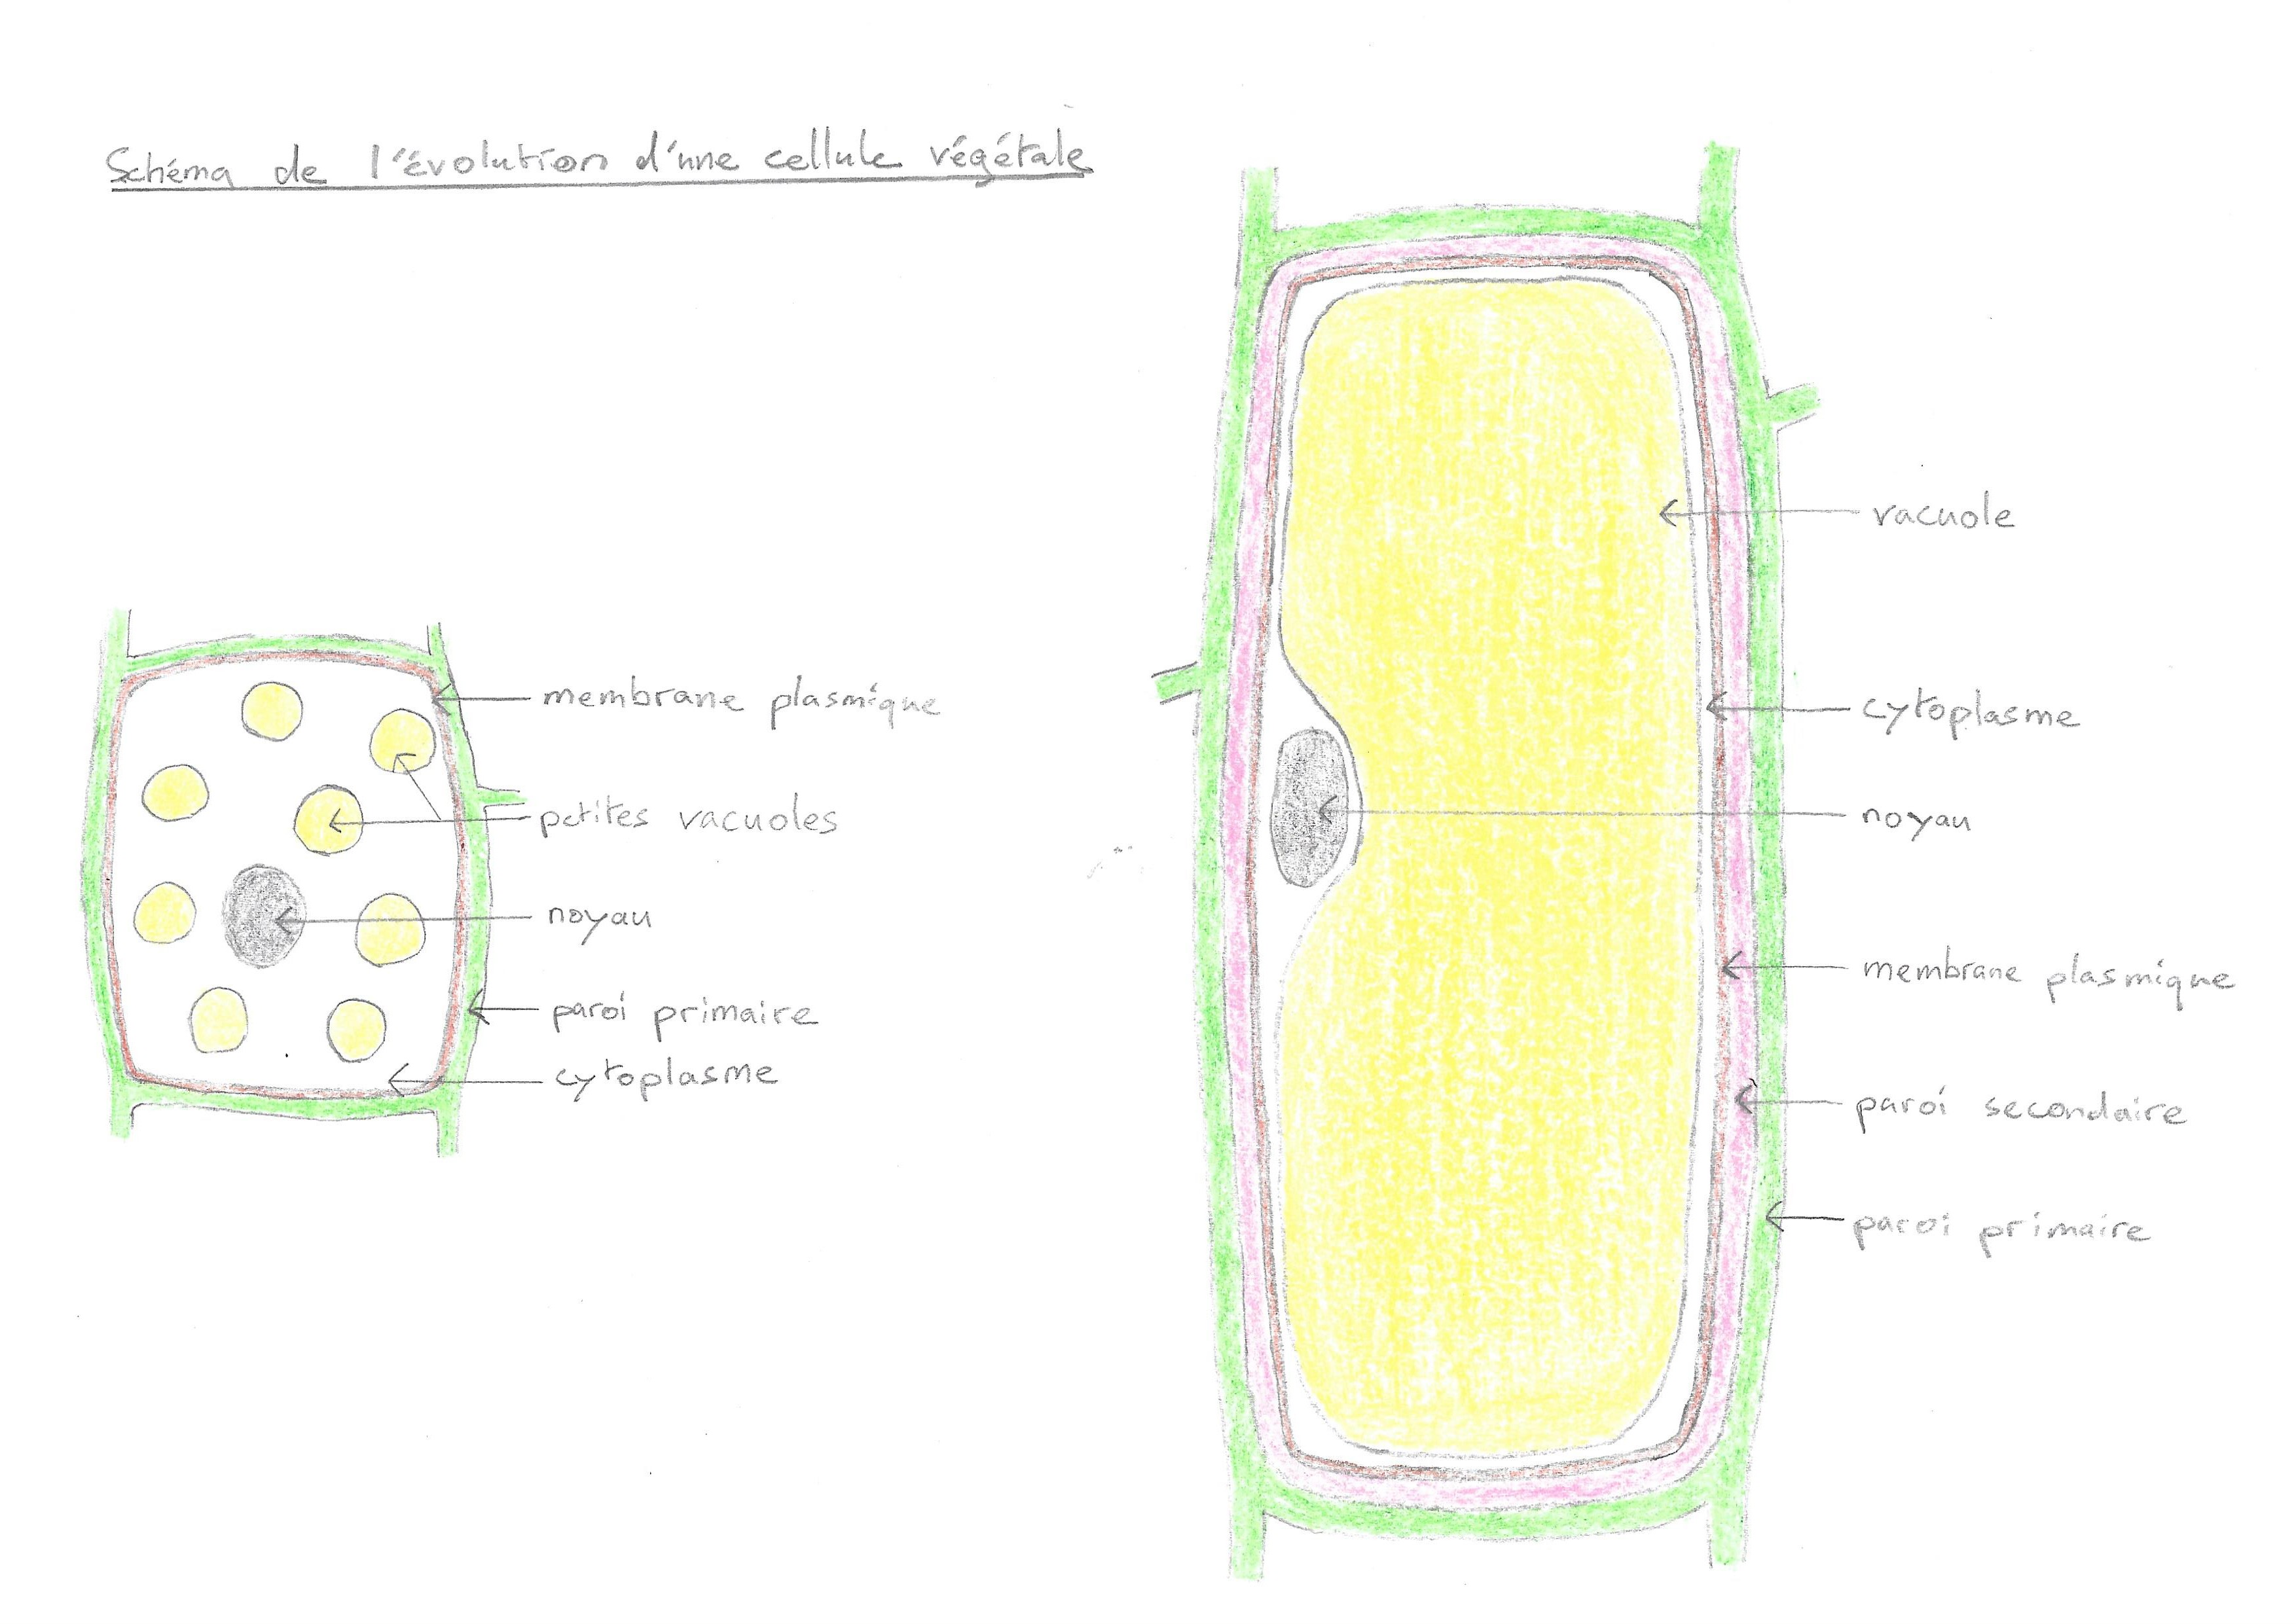 Schéma de l'évolution d'une cellule végétale
membrane plasmique
petites vacuoles
noyau
paroi primaire
cytoplasme
vacuole
cytoplasme
noyau
membrane plasmique
paroi secondaire
paroi primaire